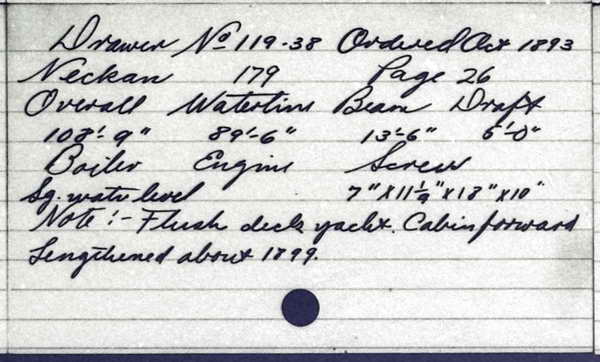 Drawer No 119-38 Ordered Oct 1893
Neckan 179 Page 26
Overall Waterline Beam Draft
108'-9" 89'-6" 13'-6" 5'-0"
Boiler Engine Screw
Sq. water level 7" x 11½" x 18" x 10"
Note :- Flush deck yacht. Cabin forward
Lengthened about 1899.